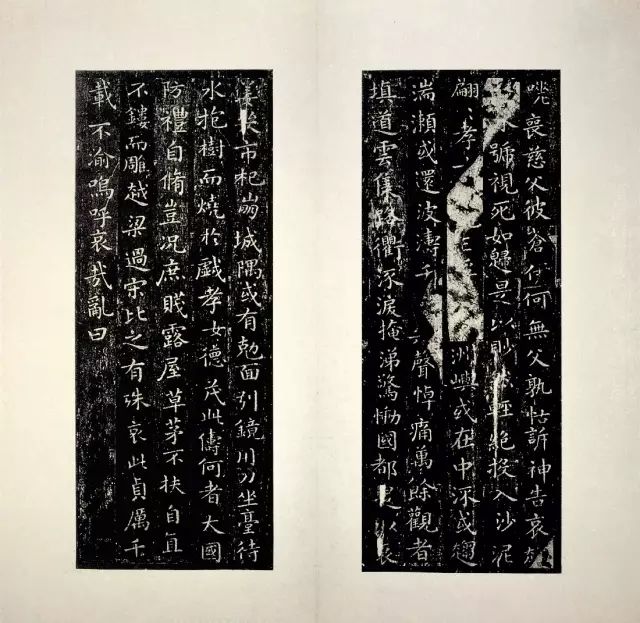 喪慈父彼蒼伊何無父孰怙訴神告哀赴
號視死如歸是以眇然輕絕投入沙泥
翩〻孝 洲嶼或在中流或趨
湍瀨或還波濤千 聲悼痛萬餘觀者
填道雲集路衢流淚掩涕驚慟國都是以哀
姜哭市杞崩城隅或有剋面引鏡 刀坐臺待
水抱樹而燒於戲孝女德茂此儔何者大國
防禮自脩豈況庶賤露屋草茅不扶自直
不鏤而雕越梁過宋比之有殊哀此貞厲千
載不渝嗚呼哀哉亂曰